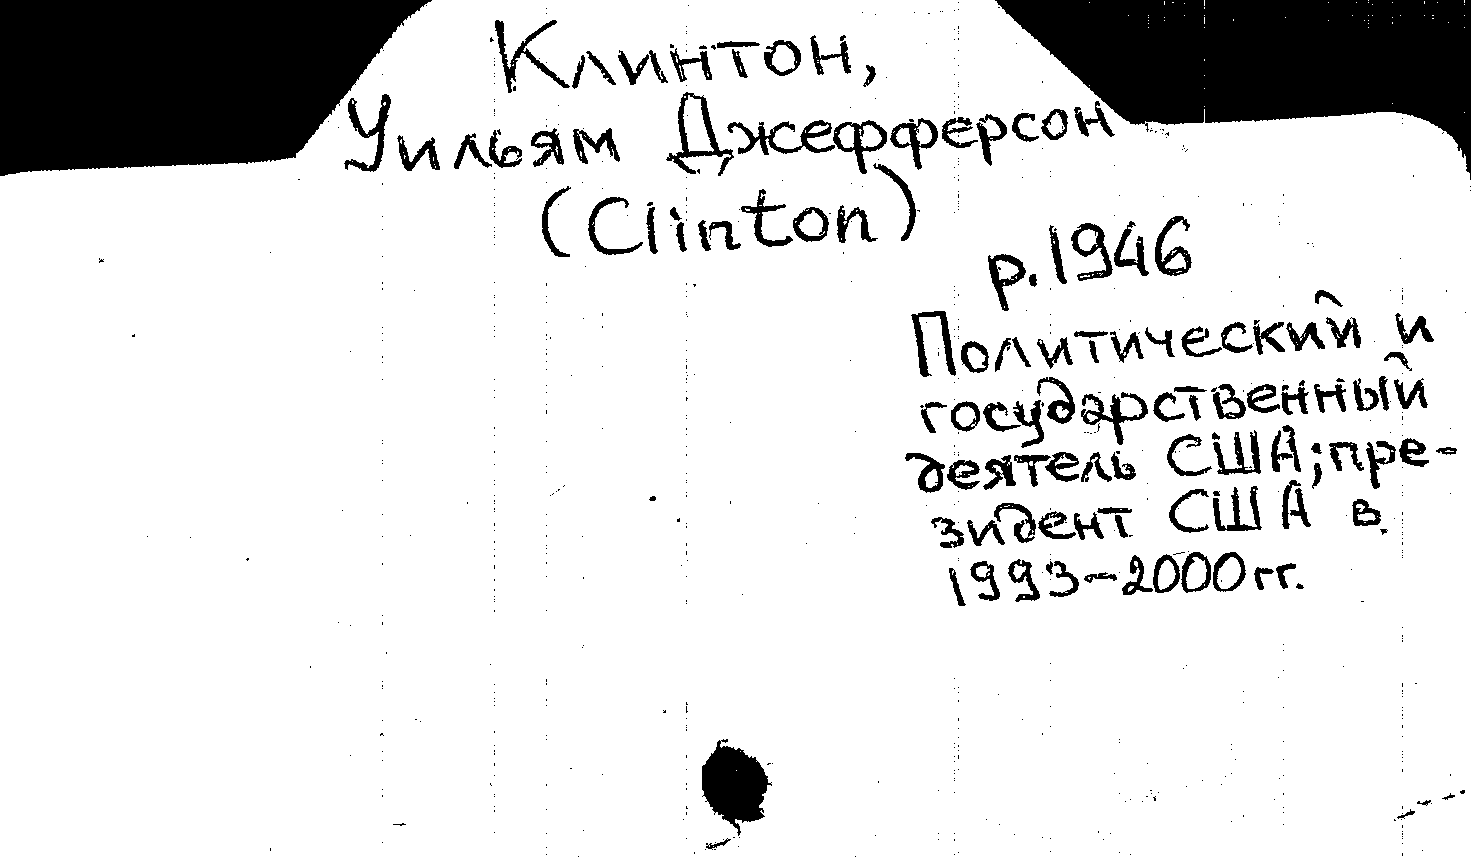 Клинтон,
Уильям Джефферсон
(Clinton)
р. 1946
Политический и
государственный
деятель США; пре-
зидент США в
1993-2000 гг.